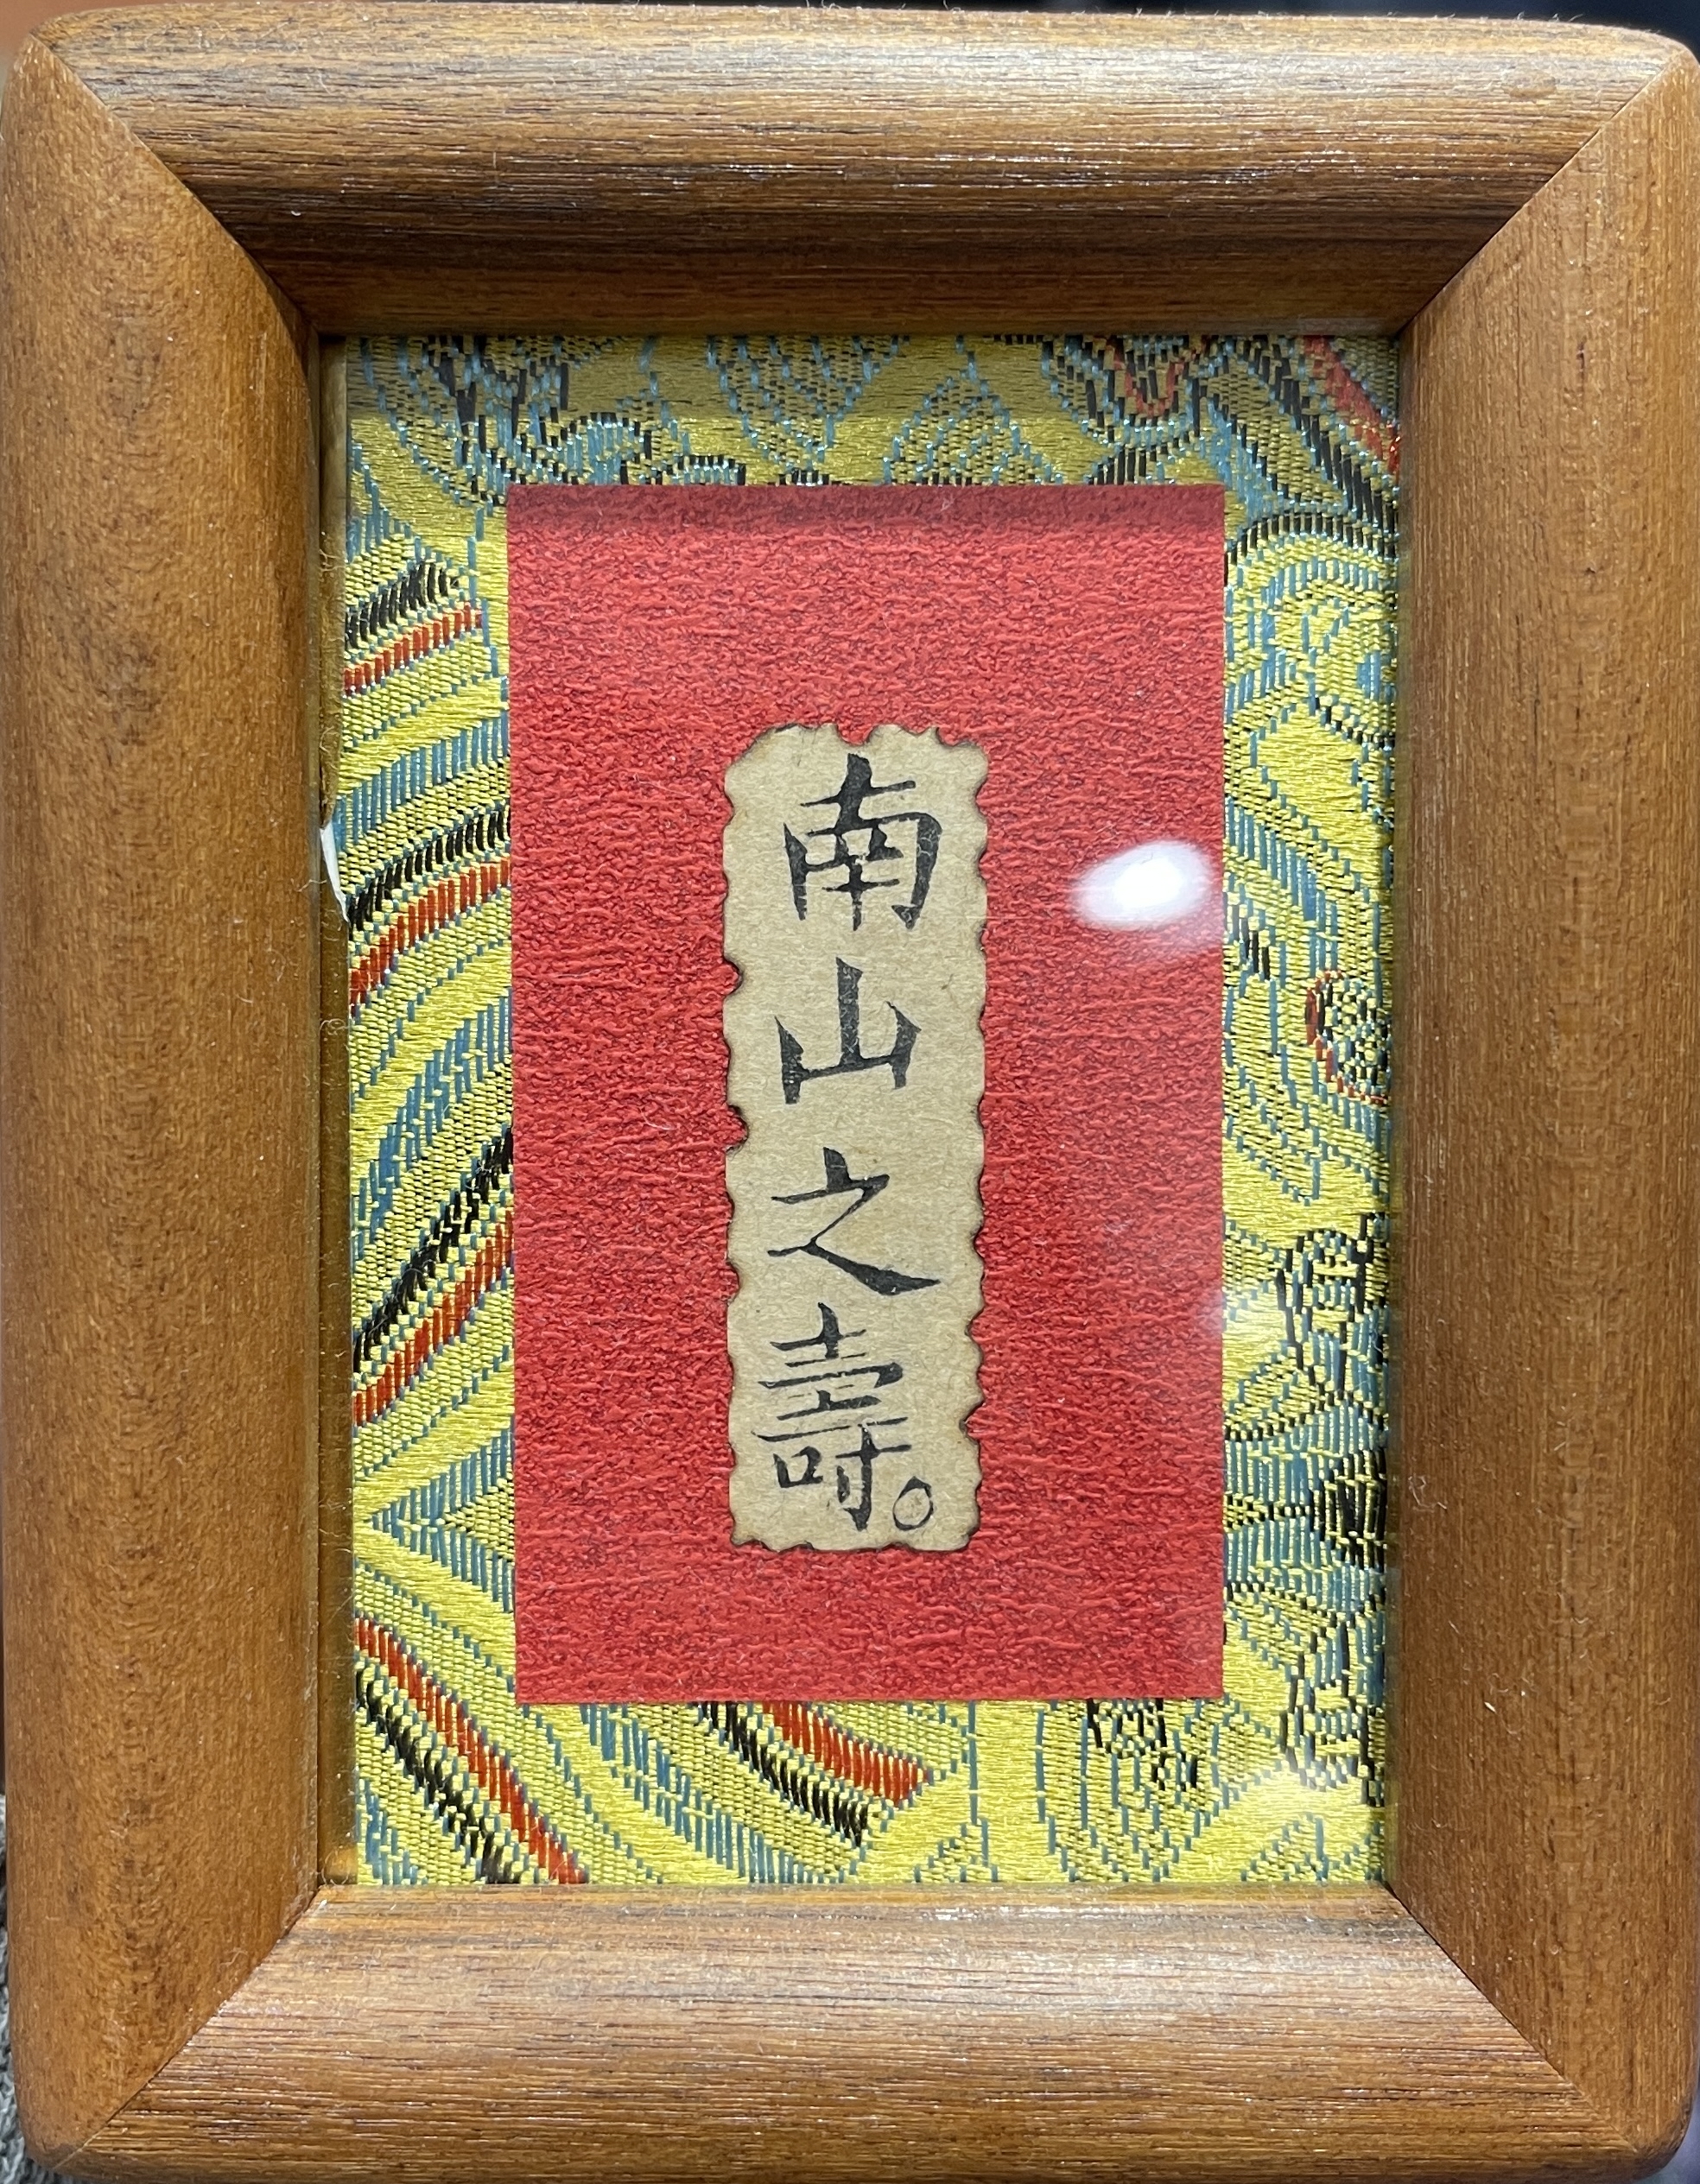 南山之壽。